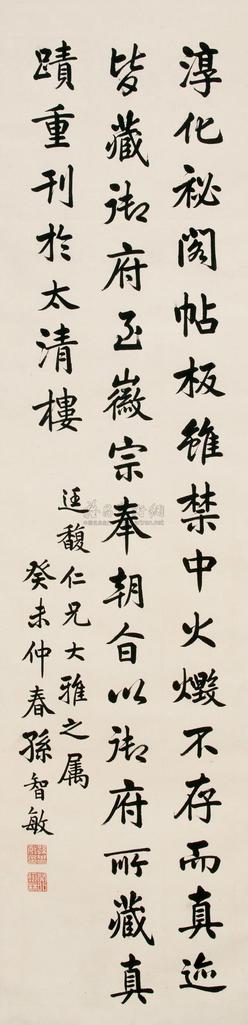 淳化祕閣帖板雖禁中火燬不存而真迹
皆藏御府至徽宗奉朝旨以御府所藏真
蹟重刊於太清樓
廷馥仁兄大雅之属
癸未仲春孫智敏